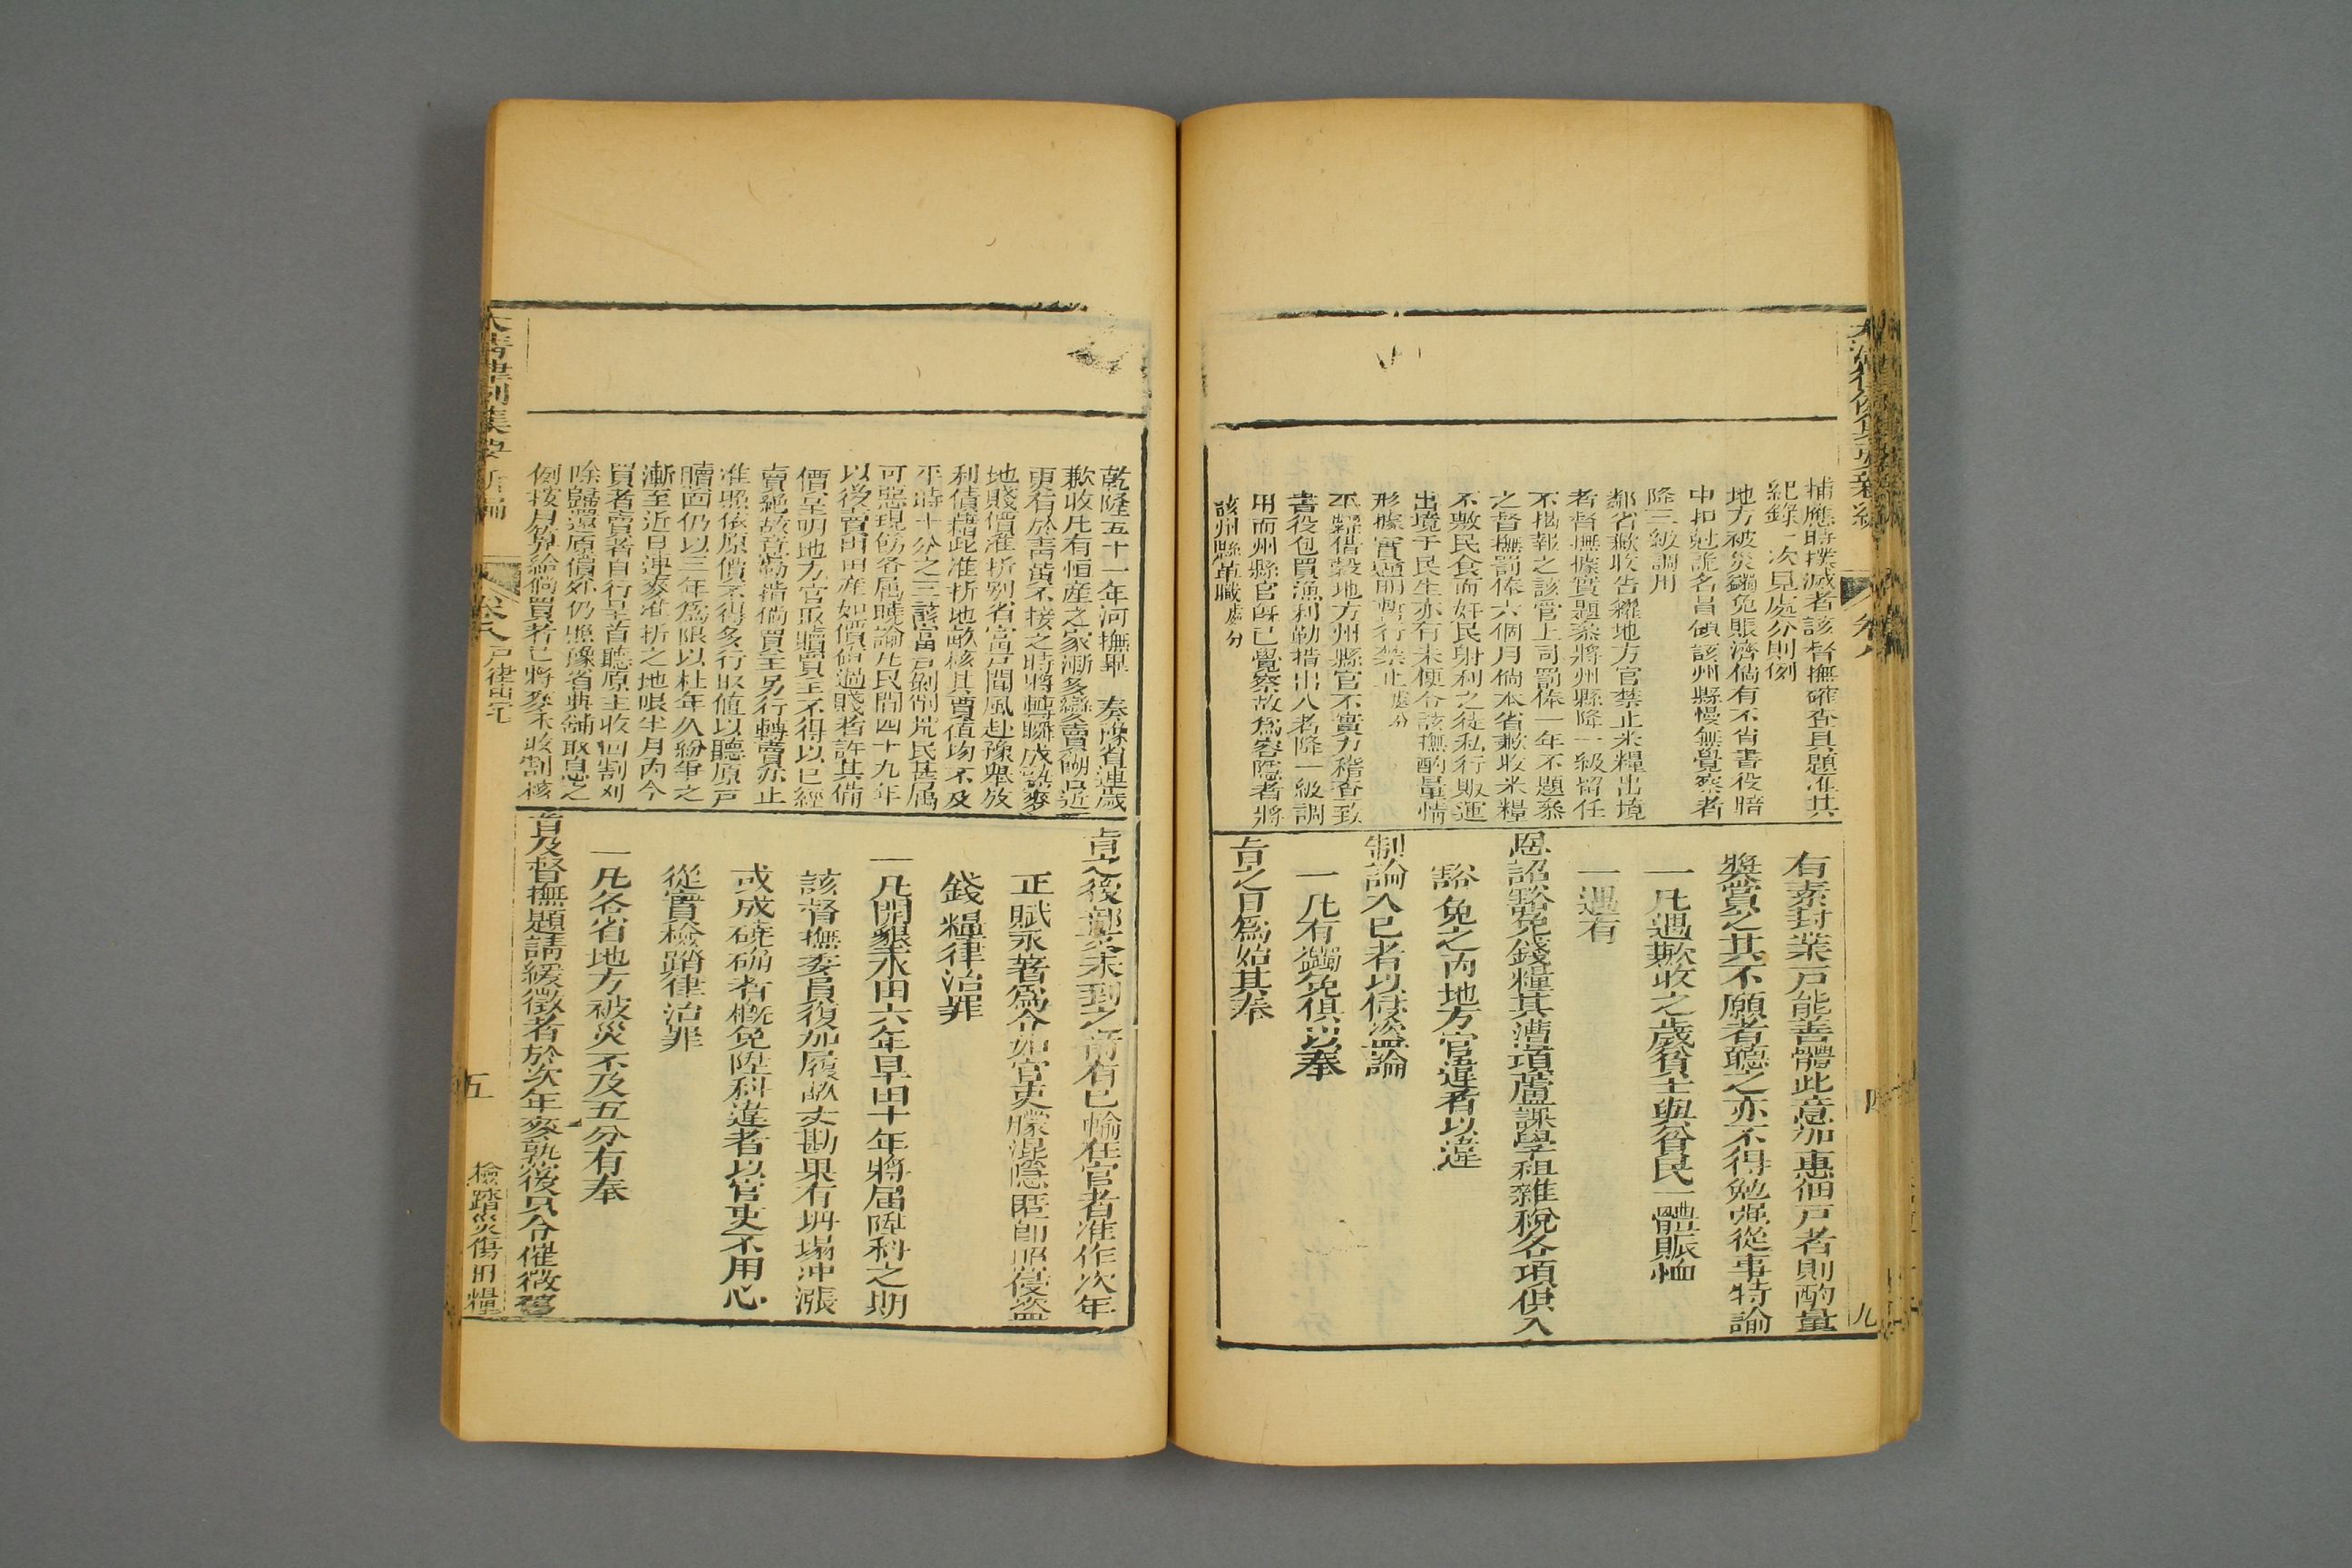 捕應時撲滅者該督撫確查具題准其
紀錄一次見處分則例
地方被災蠲免賑濟倘有不肖書役暗
中扣尅詭名冒領該州縣慢無覺察者
降三級調用
鄰省歉收告糴地方官禁止米糧出境
者督撫據實題參將州縣降一級留任
不揭報之該管上司罰俸一年不題參
之督撫罰俸六個月倘本省歉收米糧
不敷民食而奸民射利之徒私行販運
出境于民生亦有未便令該撫酌量情
形據實題明暫行禁止處分
平糶借穀地方州縣官不實力稽查致
書役包買漁利勒掯出入者降一級調
用而州縣官旣已覺察故爲容隱者將
該州縣革職處分
有素封業戶能善體此意加惠佃戶者則酌量
獎賞之其不願者聽之亦不得勉强從事特諭
一凡遇歉收之歲貧士與貧民一體賑恤
一遇有
恩詔豁免錢糧其漕項蘆課學租雜稅各項俱入
豁免之內地方官違者以違
制論入已者以侵盜論
一凡有蠲免俱以奉
旨之日爲始其奉
大清律例集要新編
卷八
四
九
乾隆五十一年河撫畢 奏豫省連歲
歉收凡有恒產之家漸多變賣餬口近
更有於靑黃不接之時將轉瞬成熟麥
地賤價准折别省富戶聞風赴豫舉放
利債藉此准折地畝核其賣值均不及
平時十分之三該富戶剝削荒民甚屬
可惡現飭各屬曉諭凡民間四十九年
以後賣出田產如價值過賤者許其備
價呈明地方官取贖買主不得以已經
賣絕故意勒掯倘買主另行轉賣亦止
准照依原價不得多行取值以聽原戶
贖囬仍以三年爲限以杜年久紛爭之
漸至近日連麥准折之地限半月內令
買者賣者自行呈首聽原主收回割刈
除歸還原價外仍照豫省典舖取息之
例按月算給倘買者已將麥禾收割核
旨之後部文未到之前有已輸在官者准作次年
正賦永著爲令如官吏朦混隱匿卽照侵盜
錢糧律治罪
一凡開墾水田六年旱田十年將屆陞科之期
該督撫委員復加履畝丈勘果有坍塌冲漲
或成磽确者槪免陞科違者以官吏不用心
從實檢踏律治罪
一凡各省地方被災不及五分有奉
旨及督撫題請緩徵者於次年麥熟後只令催徵
大清律例集要新編
卷八 戶律田宅
五
檢踏災傷田糧